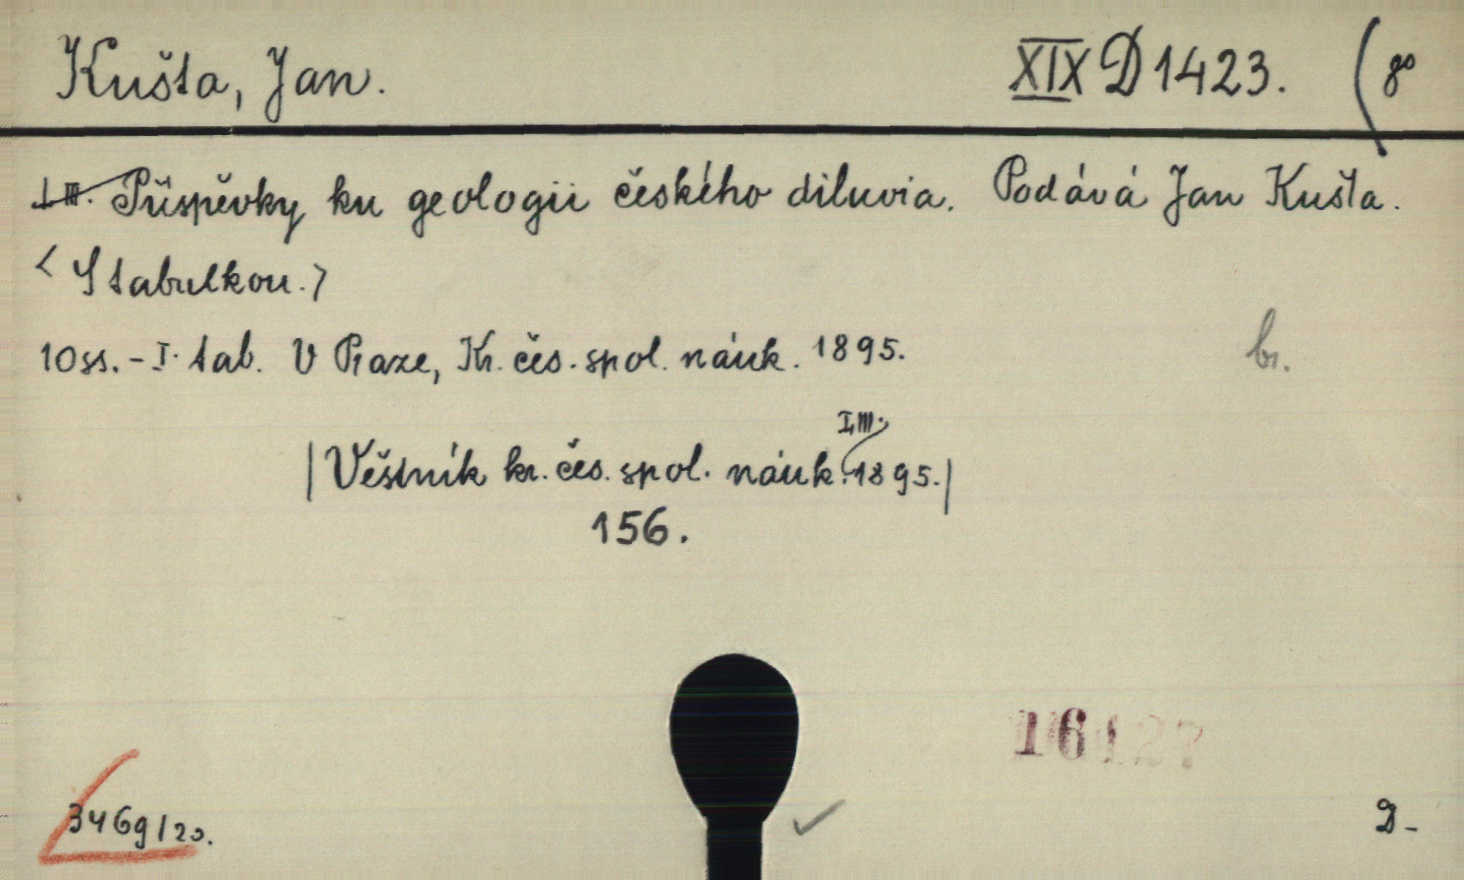 Kušta, Jan. XIX D 1423. (8°
I, III. Příspěvky ku geologii českého diluvia. Podává Jan Kušta.
<S tabulkou.>
10 ss. - I. tab. V Praze, Kr. čes. spol. náuk. 1895.
br.
I, III.
|Věstník kr. čes. spol. náuk. 1895.|
156.
16127
3469/20.
D-